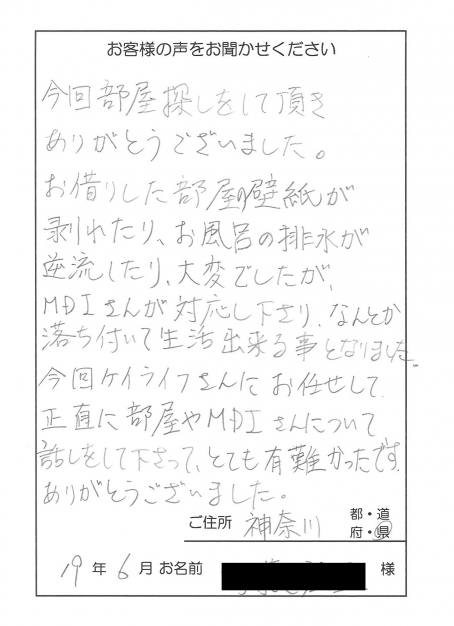 お客様の声をお聞かせください
今回部屋探しをして頂き
ありがとうございました。
お借りした部屋の壁紙が
剥れたり、お風呂の排水が
逆流したり、大変でしたが、
MDIさんが対応し下さり なんとか
落ち付いて生活出来る事となりました。
今回ケイライフさんにお任せして
正直に部屋やMDIさんについて
話しをして下さって、とても有難かったです
ありがとうございました。
ご住所 神奈川 都・道
府・県
19年6月 お名前 様